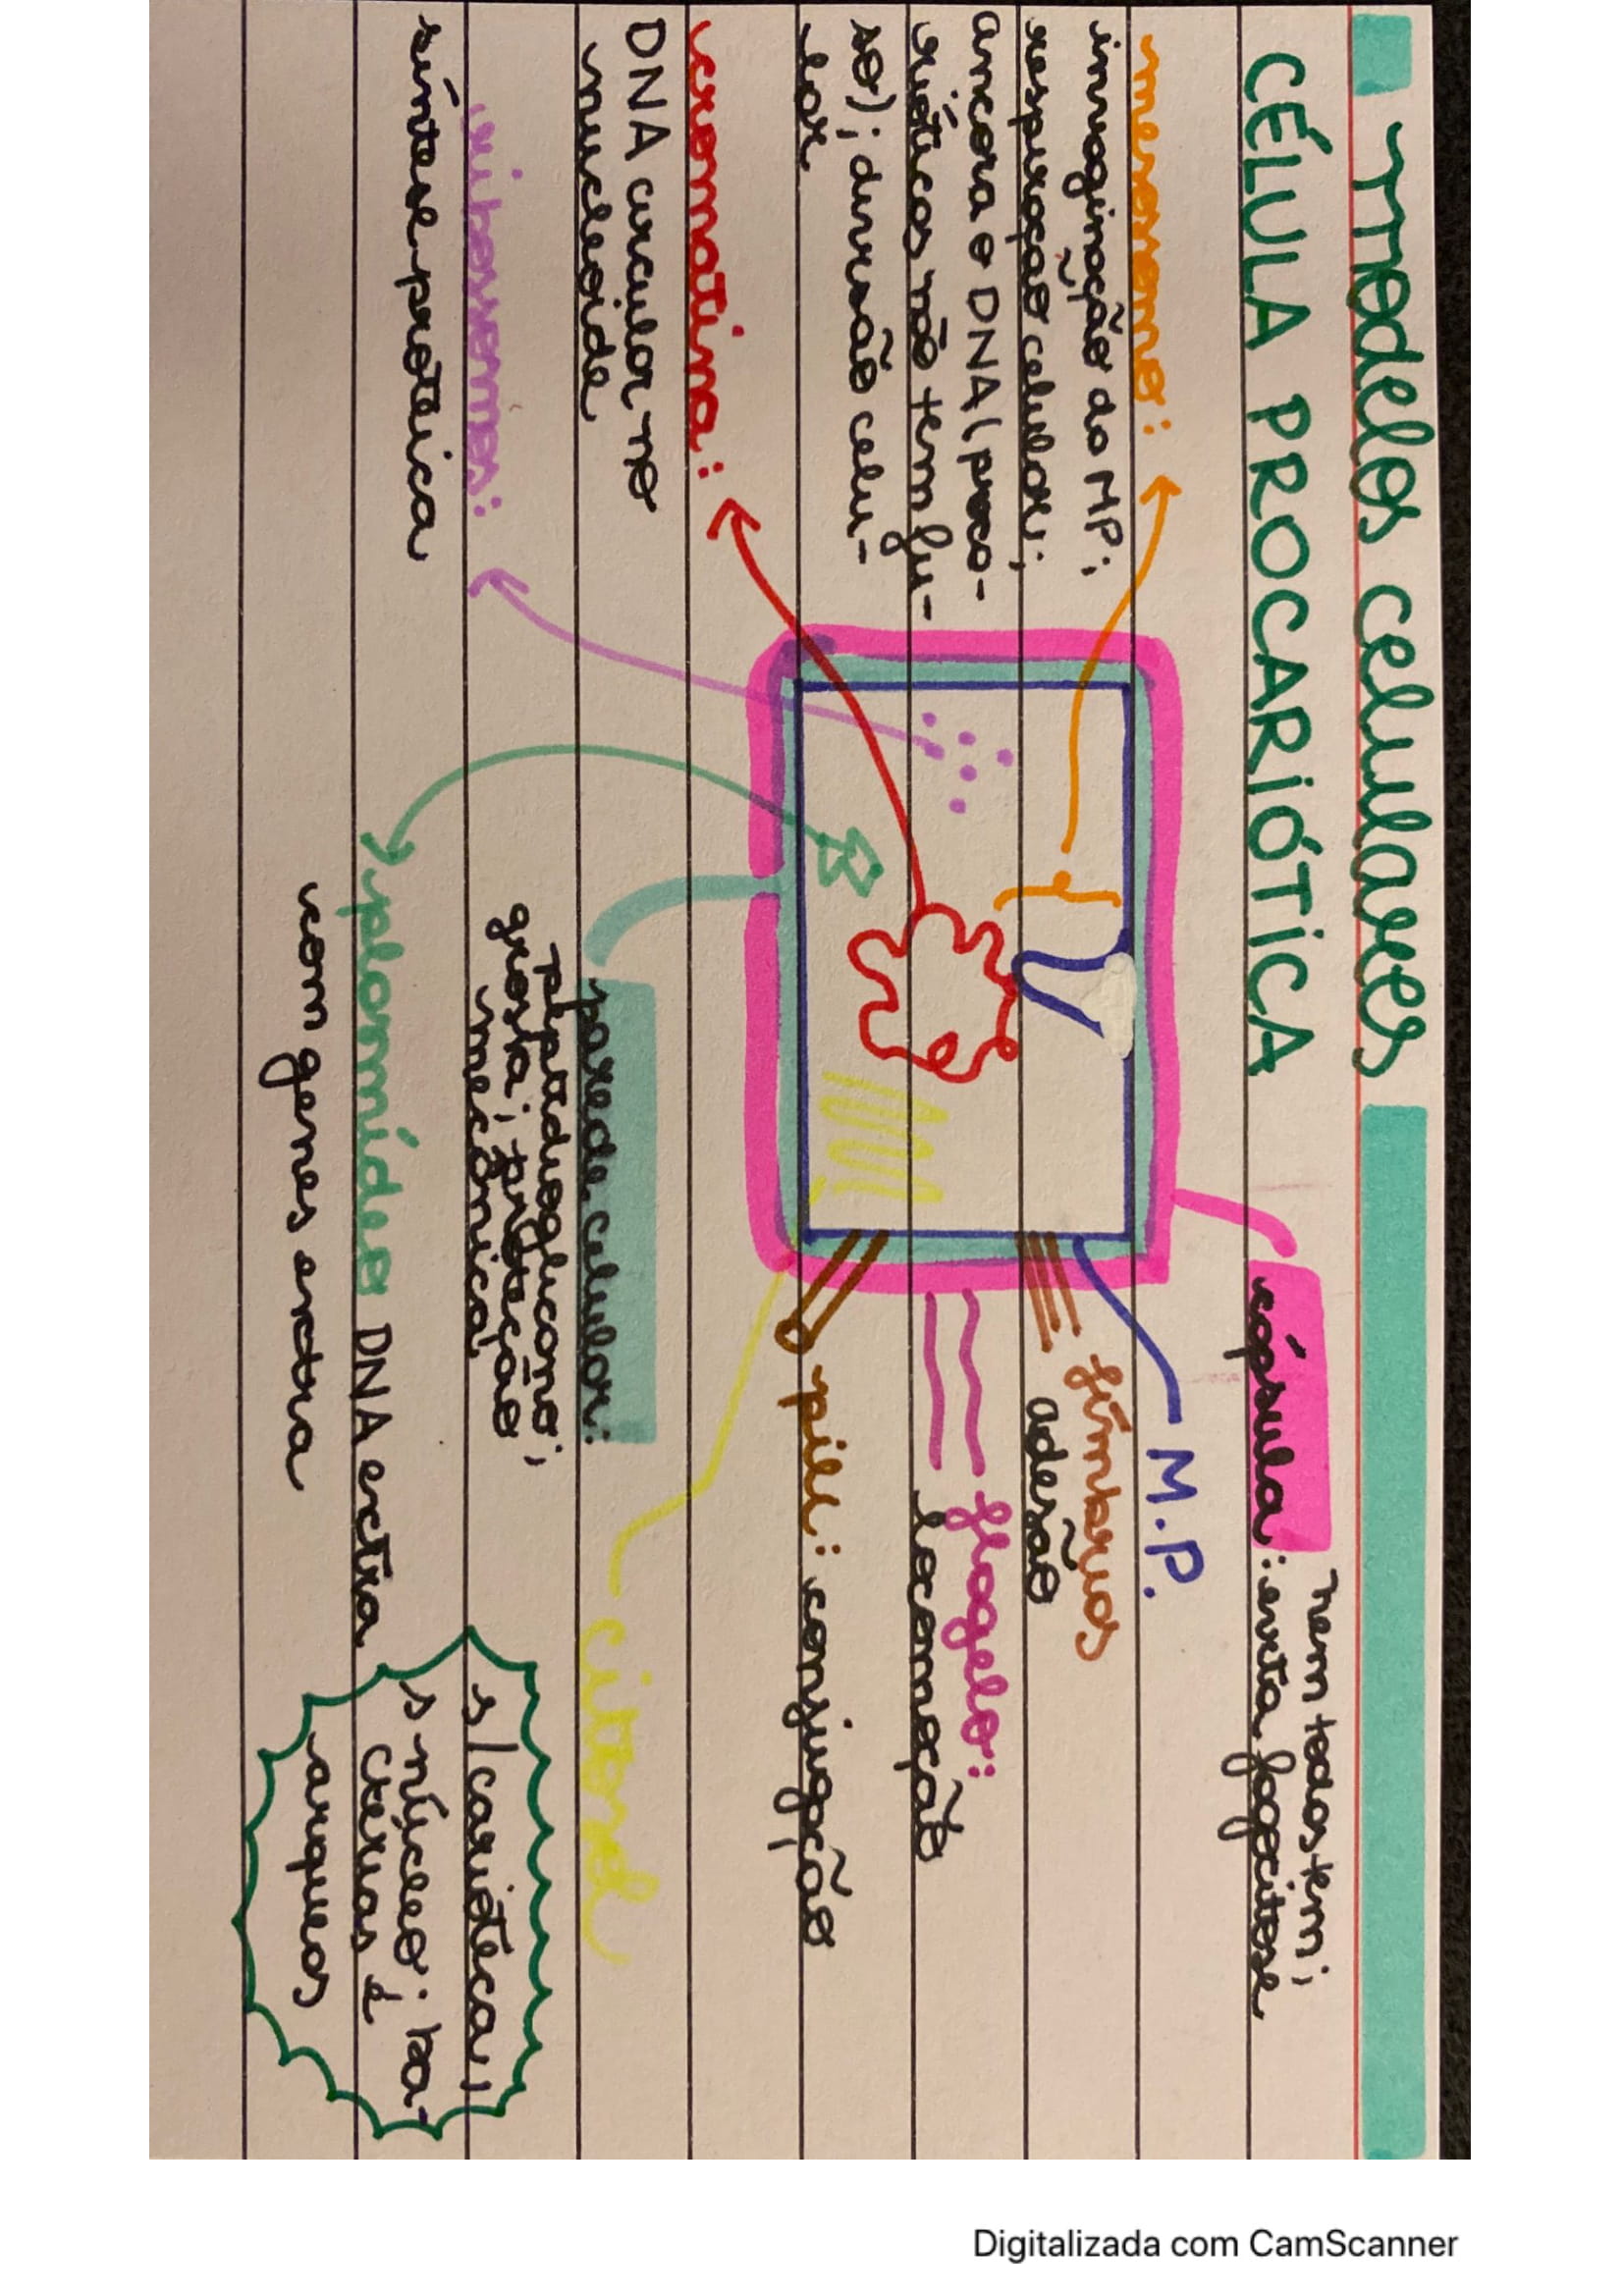 modelos celulares
CÉLULA PROCARIÓTICA
mesossomo:
invaginação da MP;
respiração celular;
ancora o DNA (proco-
rióticos não tem fu-
so); divisão celu-
lar
cromatina:
DNA circular no
nucleoide
ribossomos:
síntese proteica
cápsula: nem todas tem;
evita fagocitose
M.P.
fímbrias
adesão
flagelo:
locomoção
pili: conjugação
citosol
parede celular:
peptideoglicano;
grossa; proteção
mecânica
plasmídeo DNA extra
com genes extra
s/ carioteca,
s núcleo; ba-
ctérias e
arqueas
Digitalizada com CamScanner